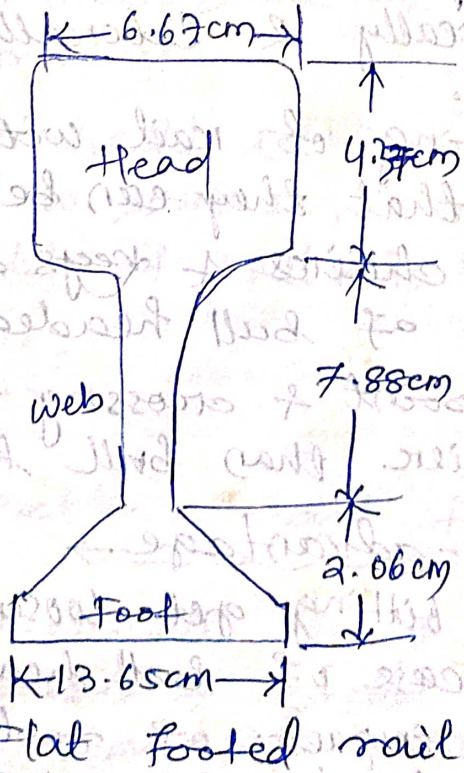 6.67cm
Head
cm
7.88cm
web
2.06cm
Foot
13.65cm
Flat footed rail